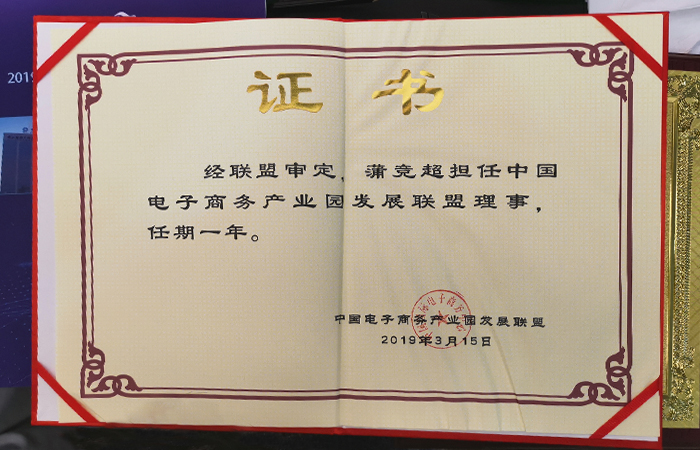 2019
证书
经联盟审定，蒲竞超担任中国
电子商务产业园发展联盟理事，
任期一年。
中国电子商务产业园发展联盟
2019年3月15日